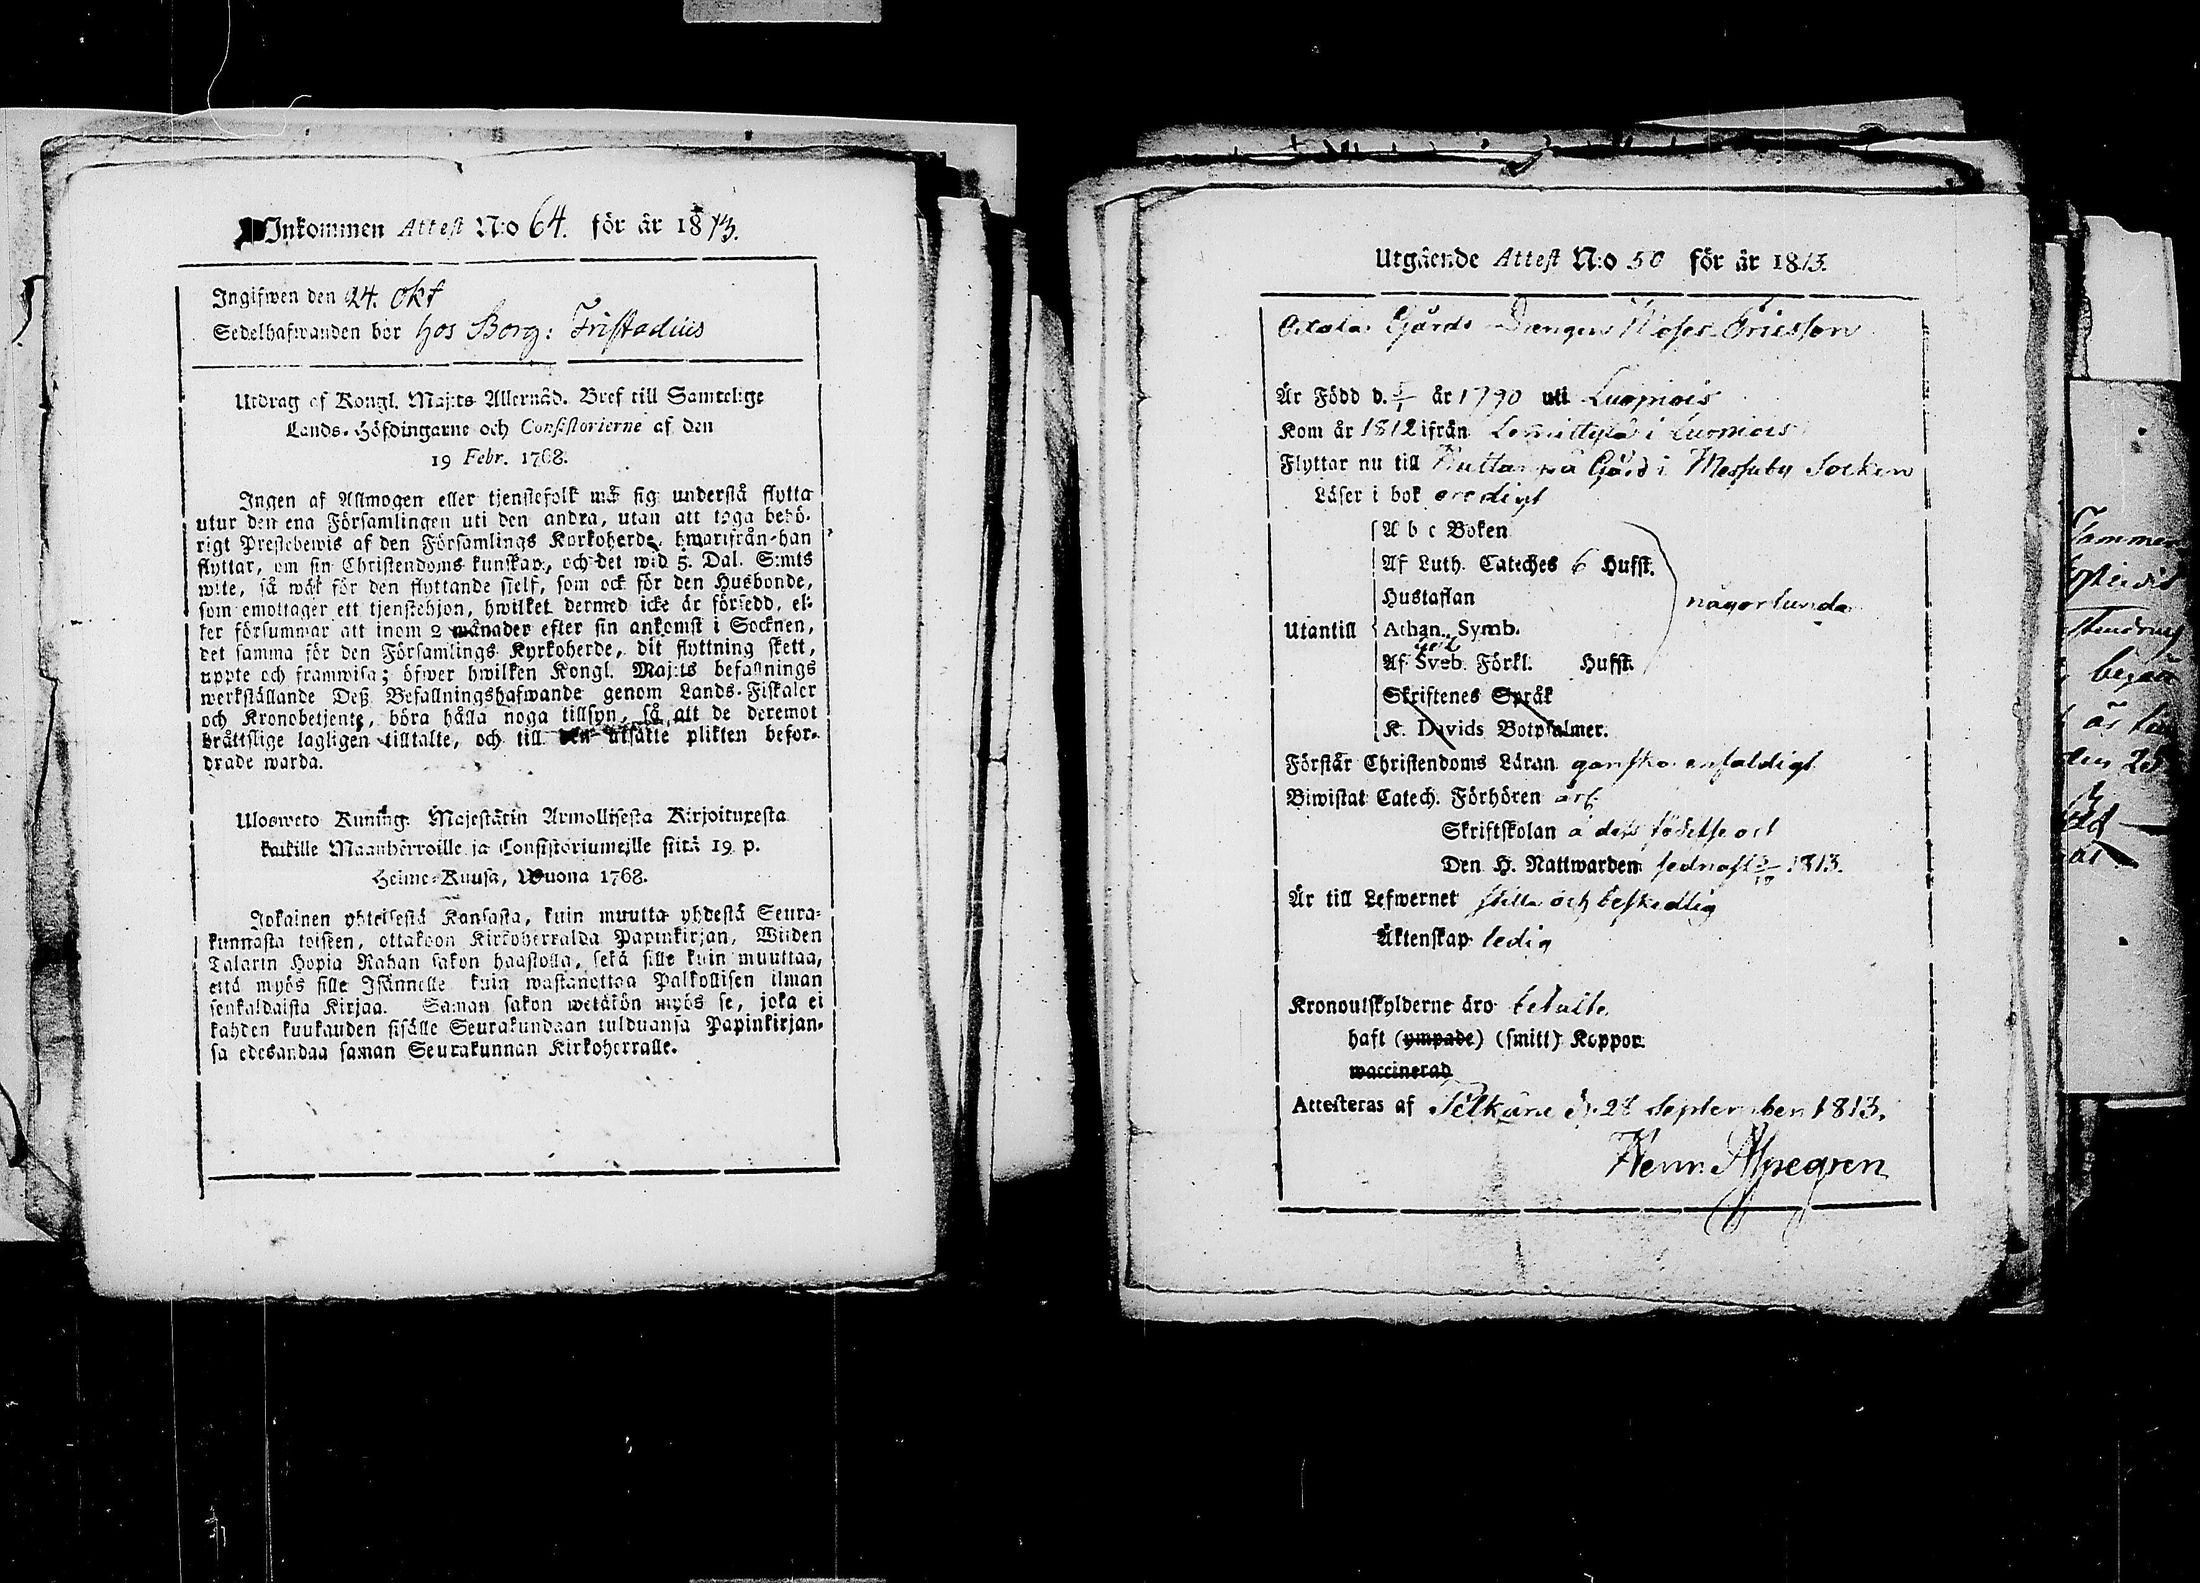 Inkommen Attest N:o 64. för år 1813.
Ingifwen den 24. Okt
Sedelhafwanden bor hos Borg: Fristadius
Utdrag af Kongl. Maj:ts Allernåd. Bref till Samtelige
Lands-Höfdingarne och Consistorierne af den
19 Febr. 1768.
Ingen af Allmogen eller tjenstefolk må sig understå flytta
utur den ena Församlingen uti den andra, utan att taga behö-
rigt Prestebewis af den Församlings Korkoherde, hwarifrån han
flyttar, om sin Christendoms kunskap, och det wid 5. Dal. S:mts
wite, så wäl för den flyttande sielf, som ock för den Husbonde,
som emottager ett tjenstehjon, hwilket dermed icke är försedd, el-
ler försummar att inom 2 månader efter sin ankomst i Socknen,
det samma för den Församlings Kyrkoherde, dit flyttning skett,
uppte och framwisa; öfwer hwilken Kongl. Maj:ts befallnings
werkställande Deß Befallningshafwande genom Lands-Fiskaler
och Kronobetjente, böra hålla noga tillsyn, så att de deremot
bråttslige lagligen tilltalte, och till den utsatte plikten befor-
drade warda.
Ulosweto Kuning. Majestätin Armollisesta Kirjoituxesta
kaikille Maanherroille ja Consistoriumeille siitä 19 p.
Helme-Kuusa, Wuona 1768.
Jokainen yhteisestä Kansasta, kuin muutta yhdestä Seura-
kunnasta toiseen, ottakoon Kirkoherralda Papinkirjan, Wiiden
Talarin Hopia Rahan sakon haastolla, sekä sille kuin muuttaa,
että myös sille Isännelle kuin wastanottaa Palkollisen ilman
senkaldaista Kirjaa. Saman sakon wetäkön myös se, joka ei
kahden kuukauden sisälle Seurakundaan tulduansa Papinkirjan-
sa edesandaa saman Seurakunnan Kirkoherralle.
Utgående Attest N:o 50 för år 1813.
Gårds Drengen Moses Ericsson
Är Född d. 5/1 år 1790 uti Luopiois
Kom år 1812 ifrån i Luopiois
Flyttar nu till Gård i Messuby Socken
Läser i bok
A b c Boken
Af Luth. Cateches 6 Hufst.
Hustaflan
någorlunda
Utantill Athan. Symb.
Af Sveb. Förkl. Hufst.
Skriftenes Språk
K. Davids Botpsalmer.
Förstår Christendoms Läran ganska enfaldigt
Biwistat Catech. Förhören
Skriftskolan å dess födelseort
Den H. Nattwarden sednast 1813.
Är till Lefwernet stilla och beskedlig
Äktenskap ledig
Kronoutskylderne äro betalte.
haft (ympade) (smitt) Koppor.
waccinerad
Attesteras af Pelkäne d. 28 September 1813.
Henr. Alpegren